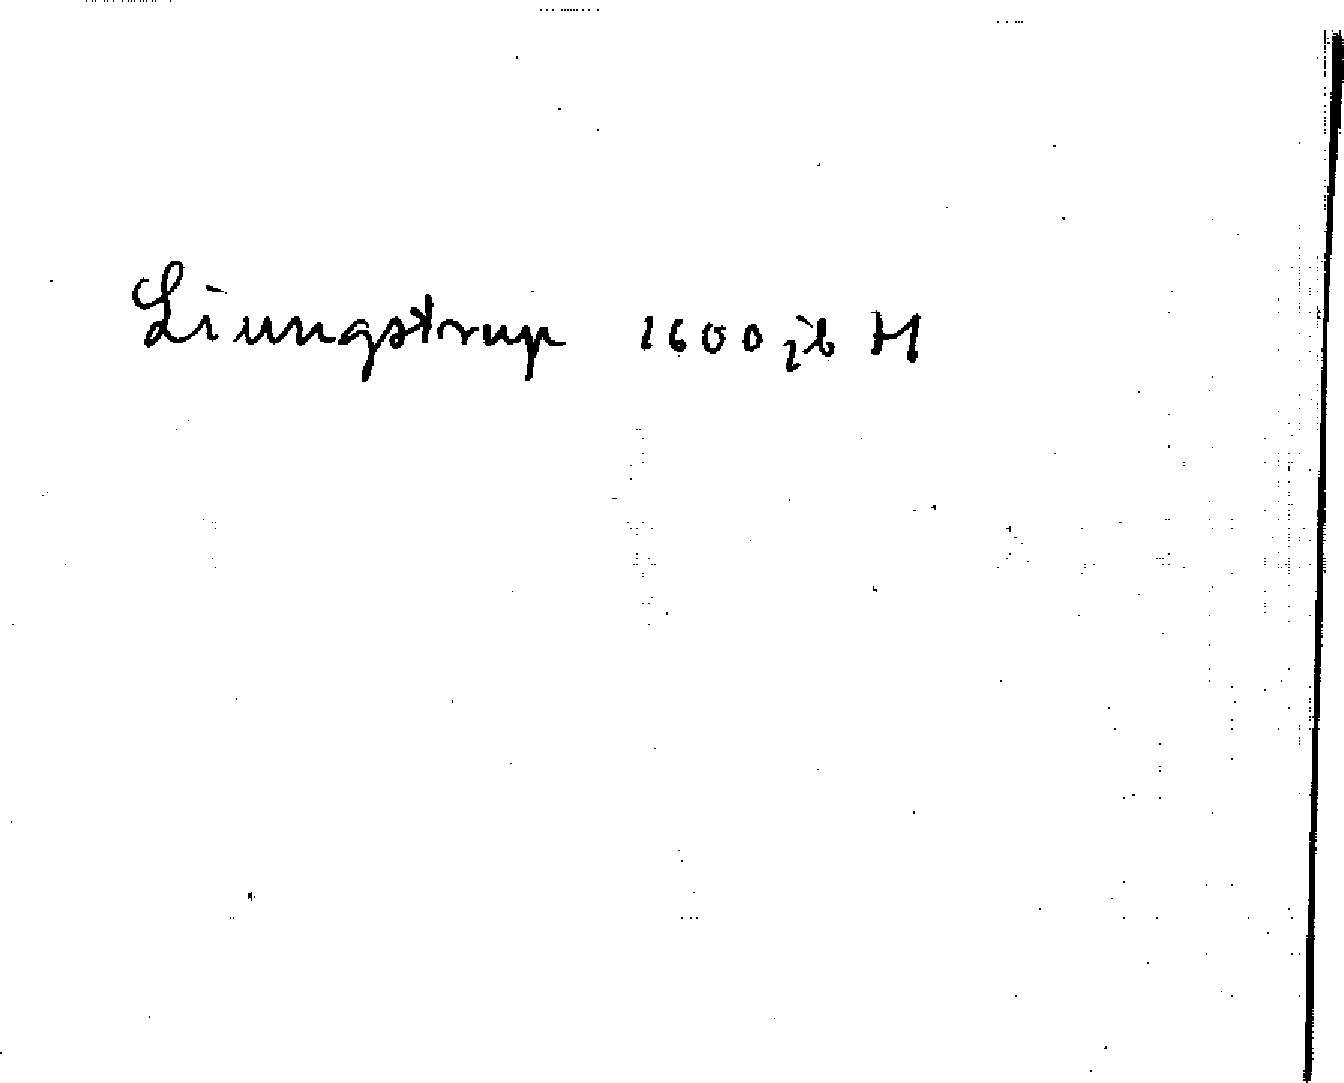 Liungstrup 1600 jb H